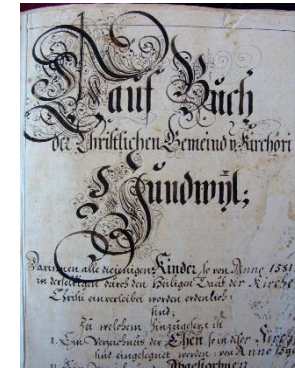 Tauf Buch
der Christlichen Gemeind u. Kirchöri
Hundwÿl;
Darinnen alle diejenigen Kinder, so von Anno 1581
in derselbigen durch den Heiligen Tauf der Kirche
Christi einverleibet worden ordenlich
sind;
Zu welchem hinzugesezt ist
1. Ein Verzeichnus der Ehen so in diser Kirch
hat eingesegnet worden, von Anno 159
Abgestorbnen